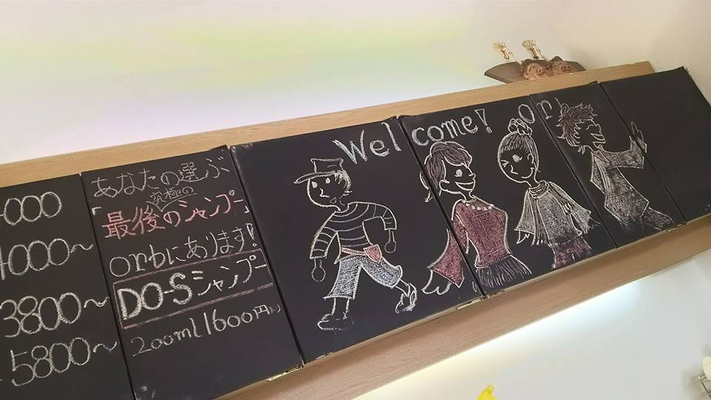 000
4000~
3800~
5800~
あなたの選ぶ
究極の
「最後のシャンプー」
orbにあります!
DO-Sシャンプー
200ml 1600円
Welcome! or